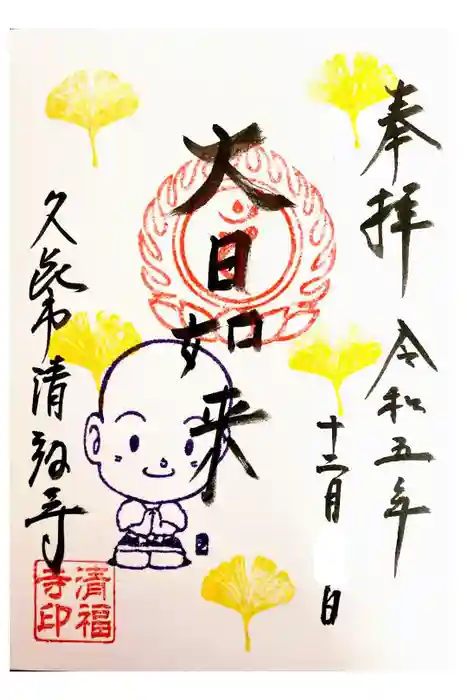 奉拝 令和五年
十二月 日
大日如来
久喜市 清福寺
清福
寺印